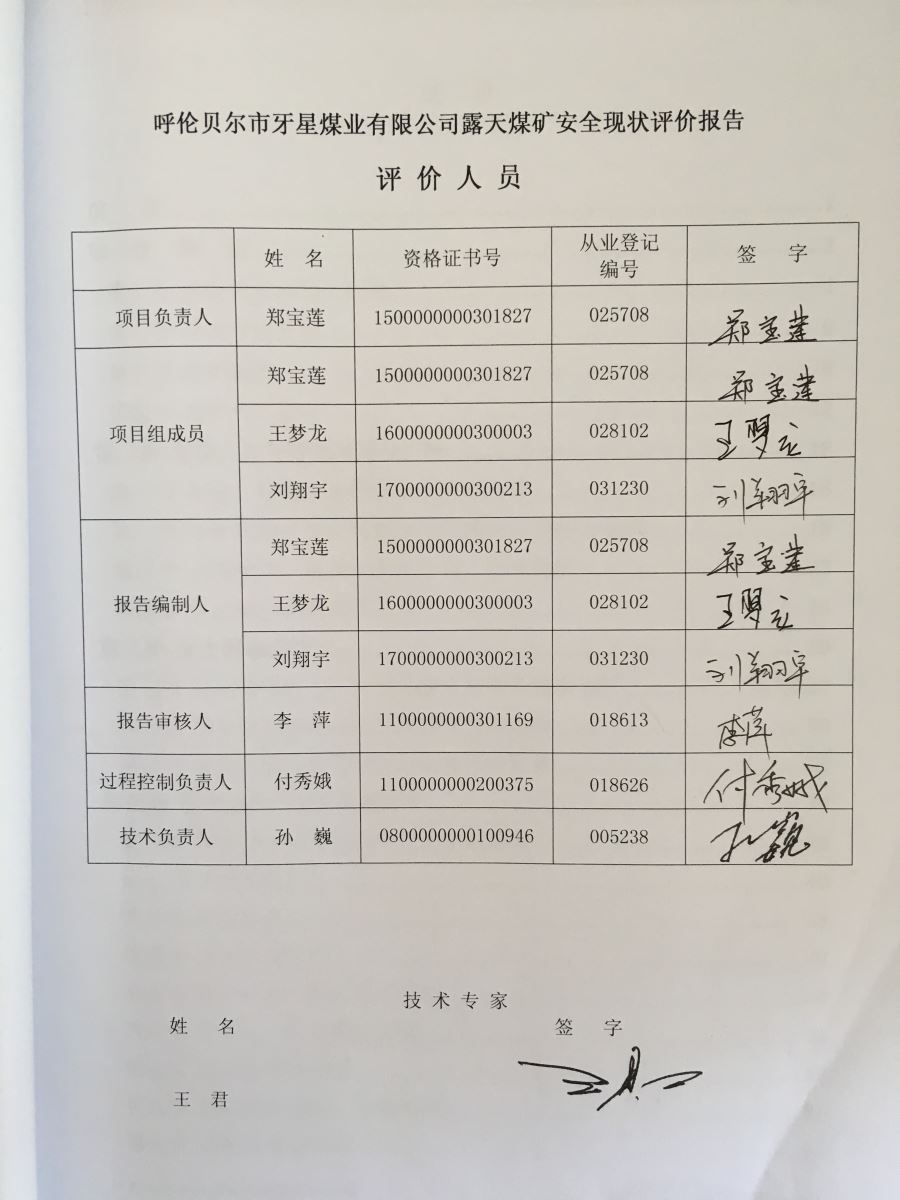 呼伦贝尔市牙星煤业有限公司露天煤矿安全现状评价报告
评价人员
姓 名 资格证书号 从业登记编号 签 字
项目负责人 郑宝莲 1500000000301827 025708 郑宝莲
项目组成员 郑宝莲 1500000000301827 025708 郑宝莲
王梦龙 1600000000300003 028102 王梦龙
刘翔宇 1700000000300213 031230 刘翔宇
报告编制人 郑宝莲 1500000000301827 025708 郑宝莲
王梦龙 1600000000300003 028102 王梦龙
刘翔宇 1700000000300213 031230 刘翔宇
报告审核人 李 萍 1100000000301169 018613 李萍
过程控制负责人 付秀娥 1100000000200375 018626 付秀娥
技术负责人 孙 巍 0800000000100946 005238 孙巍
技术专家
姓 名 签 字
王 君